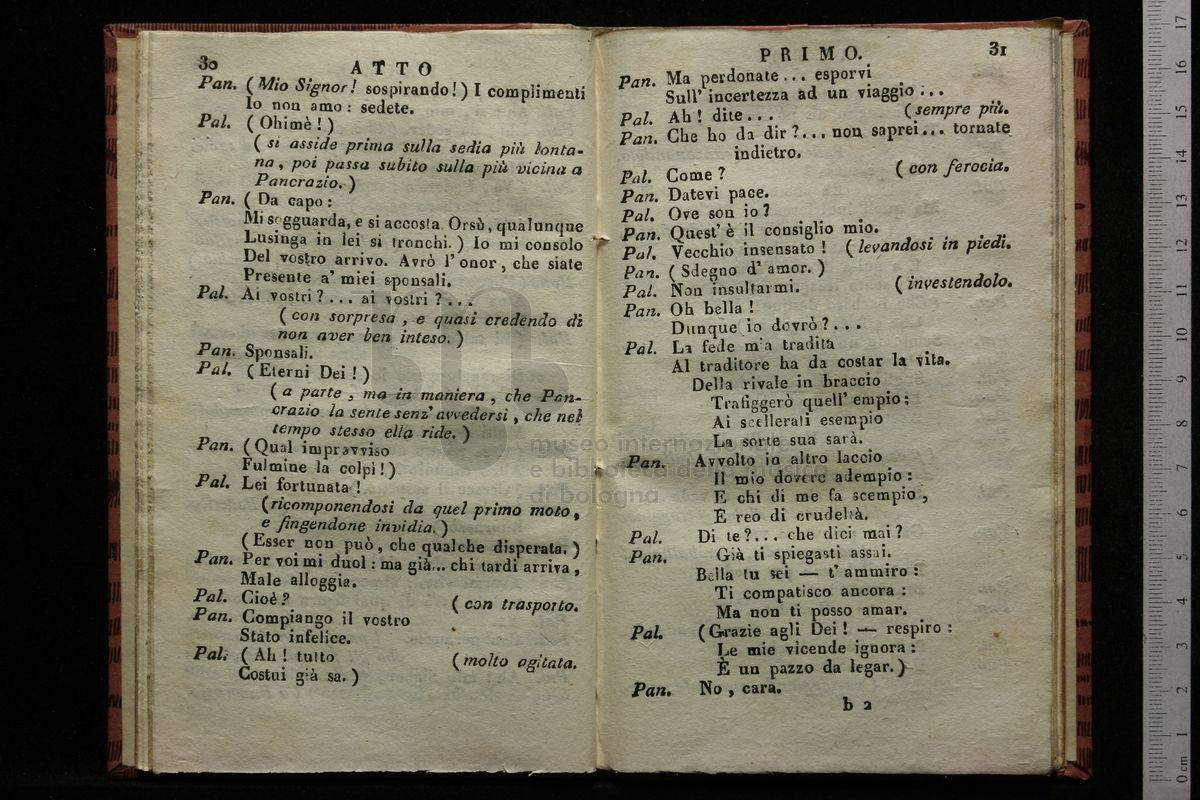 30
ATTO
Pan. (Mio Signor! sospirando!) I complimenti
Io non amo: sedete.
Pal. (Ohimè!)
(si asside prima sulla sedia più lonta-
na, poi passa subito sulla più vicina a
Pancrazio.)
Pan. (Da capo:
Mi sogguarda, e si accosta. Orsù, qualunque
Lusinga in lei si tronchi.) Io mi consolo
Del vostro arrivo. Avrò l'onor, che siate
Presente a' miei sponsali.
Pal. Ai vostri?... ai vostri?...
(con sorpresa, e quasi credendo di
non aver ben inteso.)
Pan. Sponsali.
Pal. (Eterni Dei!)
(a parte, ma in maniera, che Pan-
crazio la sente senz' avvedersi, che nel
tempo stesso ella ride.)
Pan. (Qual improvviso
Fulmine la colpì!)
Pal. Lei fortunata!
(ricomponendosi da quel primo moto,
e fingendone invidia.)
(Esser non può, che qualche disperata.)
Pan. Per voi mi duol: ma già... chi tardi arriva,
Male alloggia.
Pal. Cioè? (con trasporto.
Pan. Compiango il vostro
Stato infelice.
Pal. (Ah! tutto (molto agitata.
Costui già sa.)
PRIMO.
31
Pan. Ma perdonate... esporvi
Sull' incertezza ad un viaggio...
Pal. Ah! dite... (sempre più.
Pan. Che ho da dir?... non saprei... tornate
indietro.
Pal. Come? (con ferocia.
Pan. Datevi pace.
Pal. Ove son io?
Pan. Quest' è il consiglio mio.
Pal. Vecchio insensato! (levandosi in piedi.
Pan. (Sdegno d' amor.)
Pal. Non insultarmi. (investendolo.
Pan. Oh bella!
Dunque io dovrò?...
Pal. La fede m'a tradita
Al traditore ha da costar la vita.
Della rivale in braccio
Trafiggerò quell' empio:
Ai scellerati esempio
La sorte sua sarà.
Pan. Avvolto in altro laccio
Il mio dovere adempio:
E chi di me fa scempio,
È reo di crudeltà.
Pal. Di te?... che dici mai?
Pan. Già ti spiegasti assai.
Bella tu sei — t' ammiro:
Ti compatisco ancora:
Ma non ti posso amar.
Pal. (Grazie agli Dei! — respiro:
Le mie vicende ignora:
È un pazzo da legar.)
Pan. No, cara.
b 2
museo internazionale
e biblioteca della musica
di bologna
0 cm 1 2 3 4 5 6 7 8 9 10 11 12 13 14 15 16 17